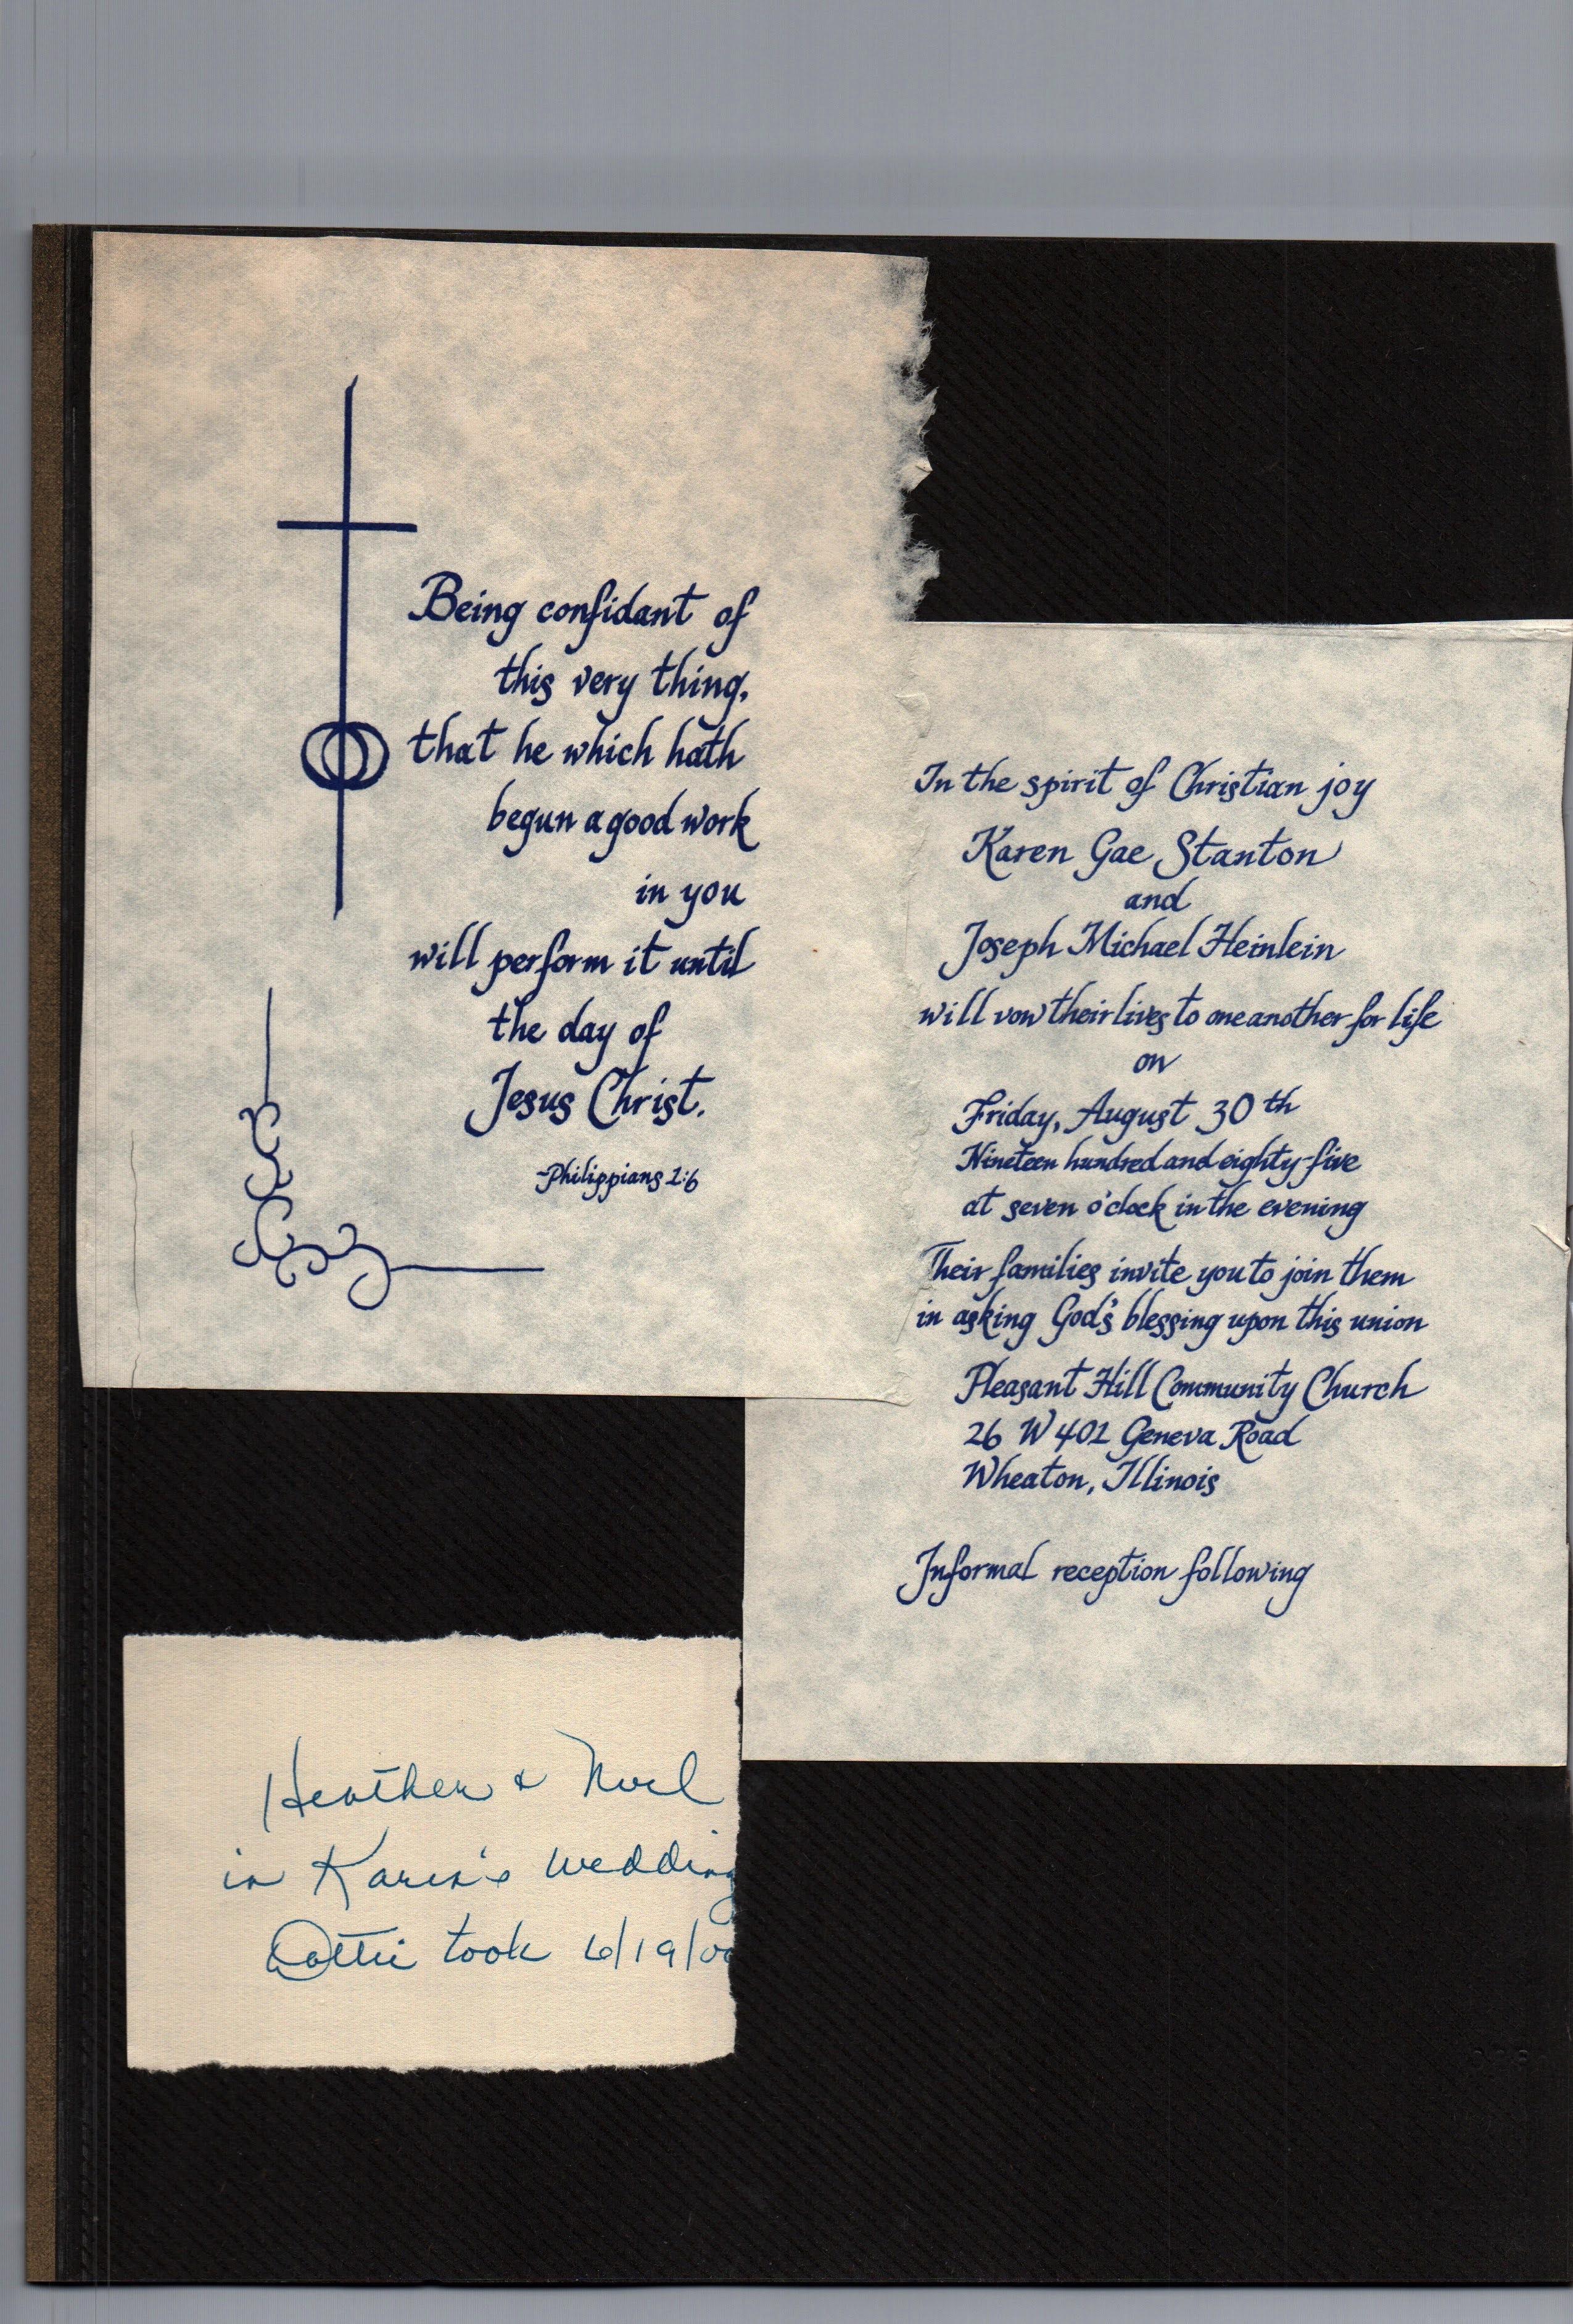 Being confidant of
this very thing,
that he which hath
begun a good work
in you
will perform it until
the day of
Jesus Christ.
-Philippians 1:6
In the spirit of Christian joy
Karen Gae Stanton
and
Joseph Michael Heinlein
will vow their lives to one another for life
on
Friday, August 30th
Nineteen hundred and eighty-five
at seven o'clock in the evening
Their families invite you to join them
in asking God's blessing upon this union
Pleasant Hill Community Church
26 W 401 Geneva Road
Wheaton, Illinois
Informal reception following
Heather & Noel
in Karen's wedding
Dottie took 6/19/00